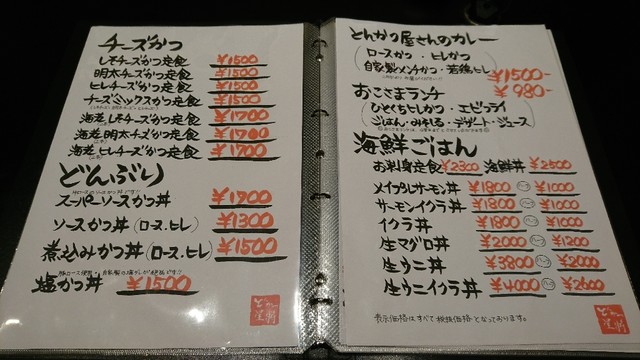 チーズかつ
しそチーズかつ定食 ¥1500
明太チーズかつ定食 ¥1500
ヒレチーズかつ定食 ¥1500
チーズミックスかつ定食 ¥1500
海老しそチーズかつ定食 ¥1700
海老明太チーズかつ定食 ¥1700
海老ヒレチーズかつ定食 ¥1700
どんぶり
スーパーソースかつ丼 ¥1900
ソースかつ丼(ロース、ヒレ) ¥1300
煮込みかつ丼(ロース、ヒレ) ¥1500
塩かつ丼 ¥1500
とんかつ屋さんのカレー
(ロースかつ・ヒレかつ
自家製メンチかつ・若鶏ヒレ) ¥1500-
おこさまランチ ¥980-
(ひとくちヒレかつ・エビフライ
ごはん・みそしる・デザート・ジュース)
海鮮ごはん
お刺身定食 ¥2300 海鮮丼 ¥2500
メイプルサーモン丼 ¥1800 ハーフ ¥1000
サーモンイクラ丼 ¥1800 ハーフ ¥1000
イクラ丼 ¥1800 ハーフ ¥1000
生マグロ丼 ¥2000 ハーフ ¥1200
生ウニ丼 ¥3800 ハーフ ¥2000
生ウニイクラ丼 ¥4000 ハーフ ¥2600
表示価格はすべて税抜価格となっております。